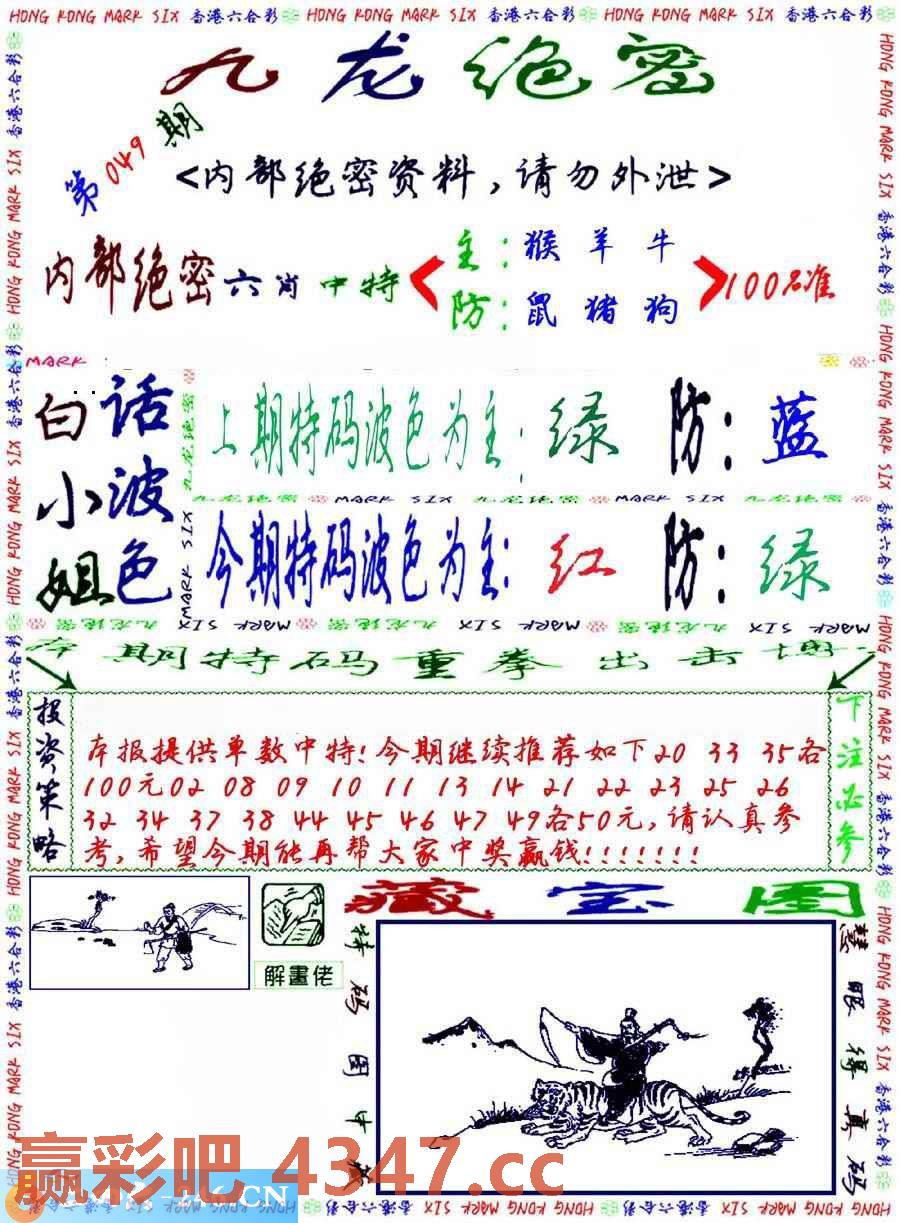 HONG KONG MARK SIX 香港六合彩 HONG KONG MARK SIX 香港六合彩 HONG KONG MARK SIX 香港六合彩
九龙绝密
第049期
<内部绝密资料,请勿外泄>
内部绝密六肖中特
主:猴羊牛
防:鼠猪狗
100%准
MARK
白小姐
话波色
上期特码波色为主:绿 防:蓝
九龙绝密 MARK SIX 九龙绝密 MARK SIX 九龙绝密
今期特码波色为主:红 防:绿
MARK SIX 九龙绝密 MARK SIX 九龙绝密 MARK SIX 九龙绝密 MARK SIX
本期特码重拳出击
投资策略
本报提供单数中特!今期继续推荐如下20 33 35各
100元02 08 09 10 11 13 14 21 22 23 25 26
32 34 37 38 44 45 46 47 49各50元,请认真参
考,希望今期能再帮大家中奖赢钱!!!!!!!
下注必参
藏宝图
解畫佬
特码图中
慧眼得真码
赢彩吧 4347.cc
.CN